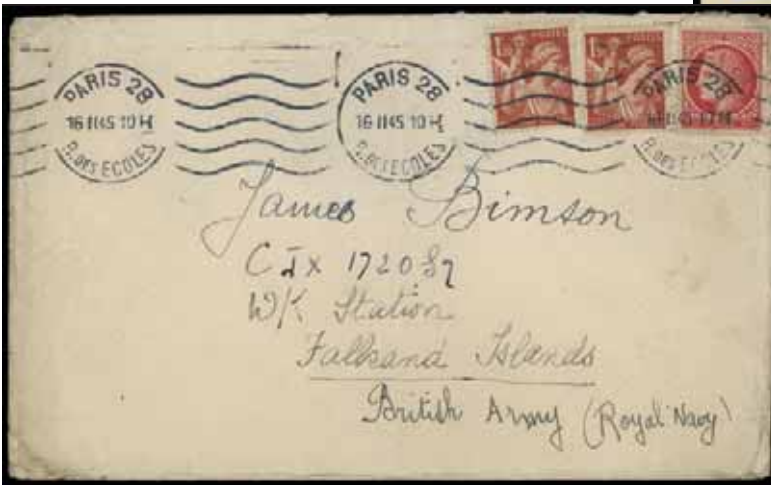 PARIS 28
16 II 45 10 H
R. DES ECOLES
PARIS 28
16 II 45 10 H
R. DES ECOLES
PARIS 28
R. DES ECOLES
James Bimson
172089
W/K Station
Falkand Islands
British Army (Royal Navy)